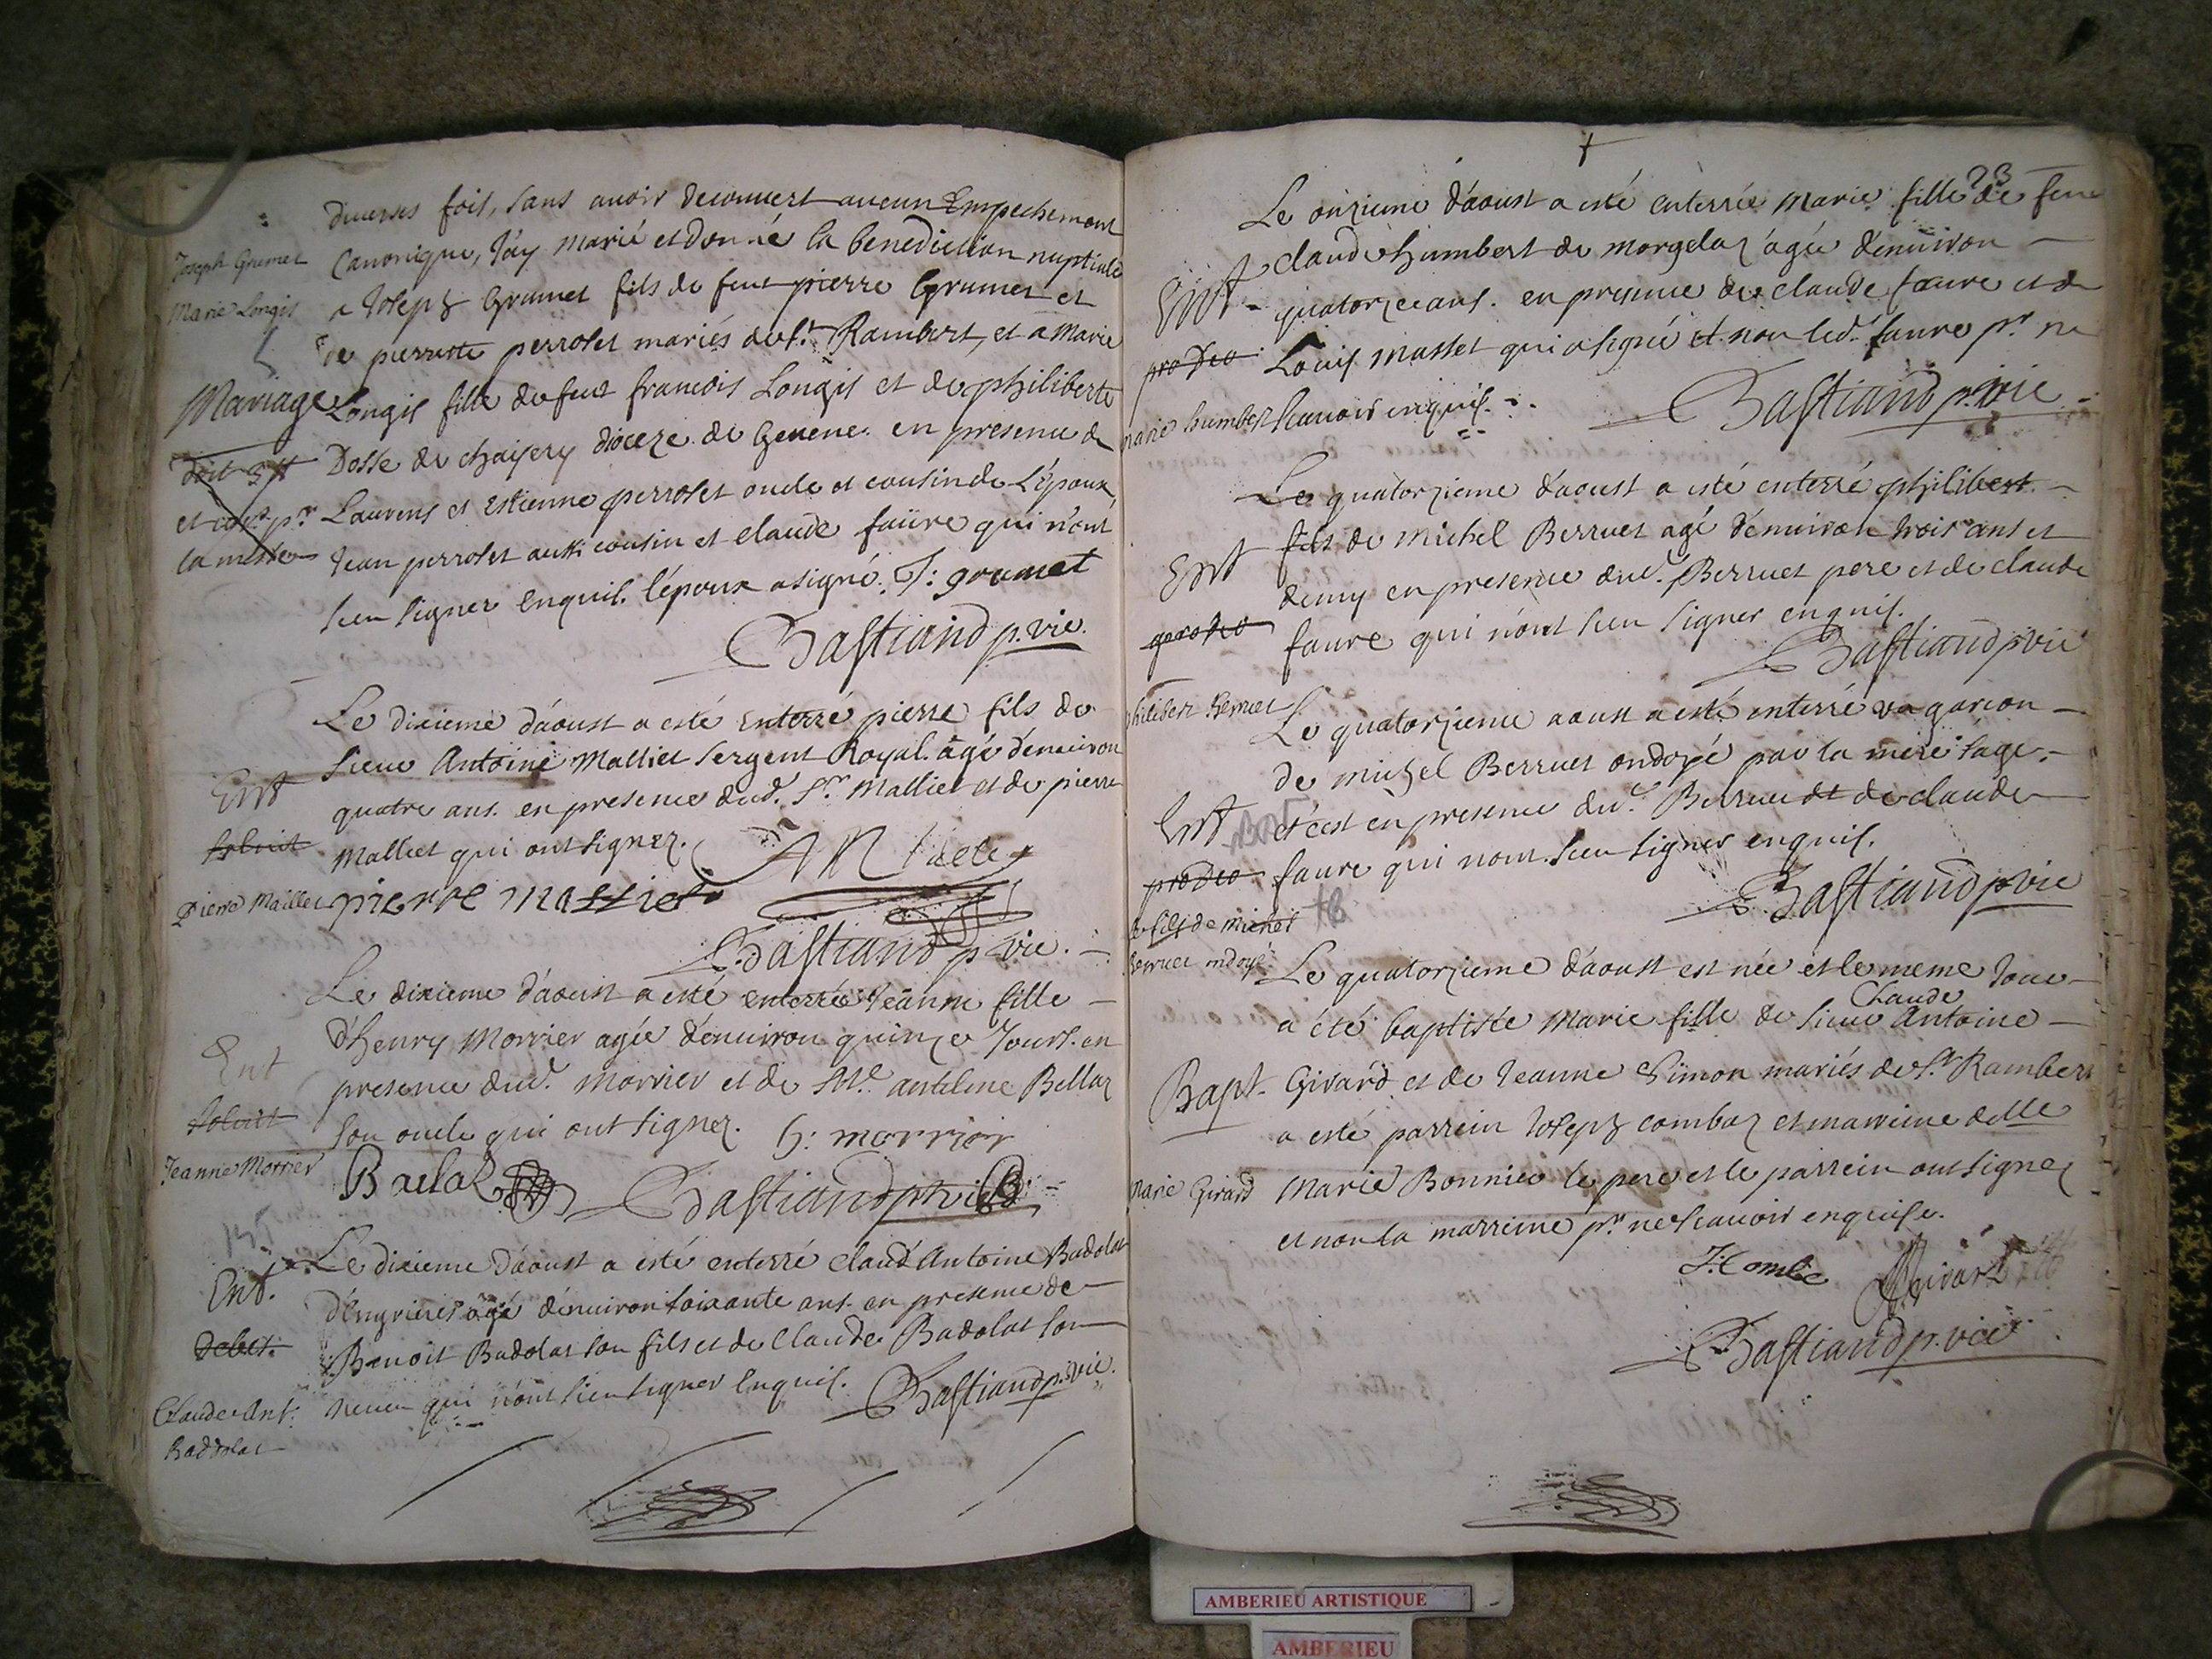 diverses fois, sans avoir decouvert aucun Empechement
Joseph Grumet
Canonique, J'ay Marié et donné la benediction nuptiale
Marie Longis
a Joseph Grumet fils de feut pierre Grumet et
de pierrette perrolet mariés de St. Rambert, et a Marie
Mariage
Longis fille de feut francois Longis et de philiberte
doit 3 #
Dosse de chaisery dioceze de Geneve en presence de
et pr
Laurens et Estienne perrolet oncle et cousin de L'époux,
la messe
Jean perrolet aussi cousin et claude faüre qui n'ont
sceu signer enquis. l'époux a signé. J: grumet
Bastiand p. vic.
Le dixieme d'aoust a esté enterré pierre fils de
Ent
sieur Antoine Malliet sergent Royal. âgé d'enuiron
quatre ans. en presence dud. Sr. Malliet et de pierre
soluit
Malliet qui ont signez.
Pierre Maillet
pierre malliet
Bastiand p vic.
Le dixieme d'aoust a esté enterrée Jeanne fille
Ent
d'henry Morrier agée d'enuiron quinze Jours. en
presence dud. morrier et de Me. antelme Bellaz
soluit
son oncle qui ont signez. h: morrier
Jeanne Morrier
Bastiand p vic
Le dixieme d'aoust a esté enterré Claud Antoine Badolat
Ent.
d'Engrieres agé d'enuiron soixante ans. en presence de
Debet.
Benoit Badolat son fils et de Claude Badolat son
Claude Ant:
neveu qui n'ont sceu signer enquis. Bastiand p. vic.
Badolat
23
Le onzieme d'aoust a esté enterrée Marie fille de feu
claude humbert de morgelaz agée d'enuiron
Ent
quatorze ans. en presence de claude faure et de
pro Deo
Louis masset qui a signé et non led. faure pr. ne
marie humbert
scauoir enquis.
Bastiand p. vic
Le quatorzieme d'aoust a esté enterré philibert
fils de michel Berruet agé d'enuiron trois ans et
Ent
demy en presence dud. Berruet pere et de claude
pro deo
faure qui n'ont sceu signer enquis.
Bastiand p vic
philibert Berruet
Le quatorzieme aoust a esté enterré un garcon
de michel Berruet ondoyé par la mere sage.
Ent
et c'est en presence dud. Berruet et de claude
pro Deo
faure qui n'ont sceu signer enquis.
Bastiand p vic
le fils de michel
Berruet ondoyé
Le quatorzieme d'aoust est née et le meme Jour
a été baptisée Marie fille de sieur Claude Antoine
Bapt.
Girard et de Jeanne Simon mariés de St. Rambert
a esté parrein Joseph combaz et marreine delle
Marie Girard
Marie Bonnier le pere et le parrein ont signez
et non la marreine pr. ne scauoir enquise.
J. Combe
Girard
Bastiand p. vic
AMBERIEU ARTISTIQUE
AMBERIEU